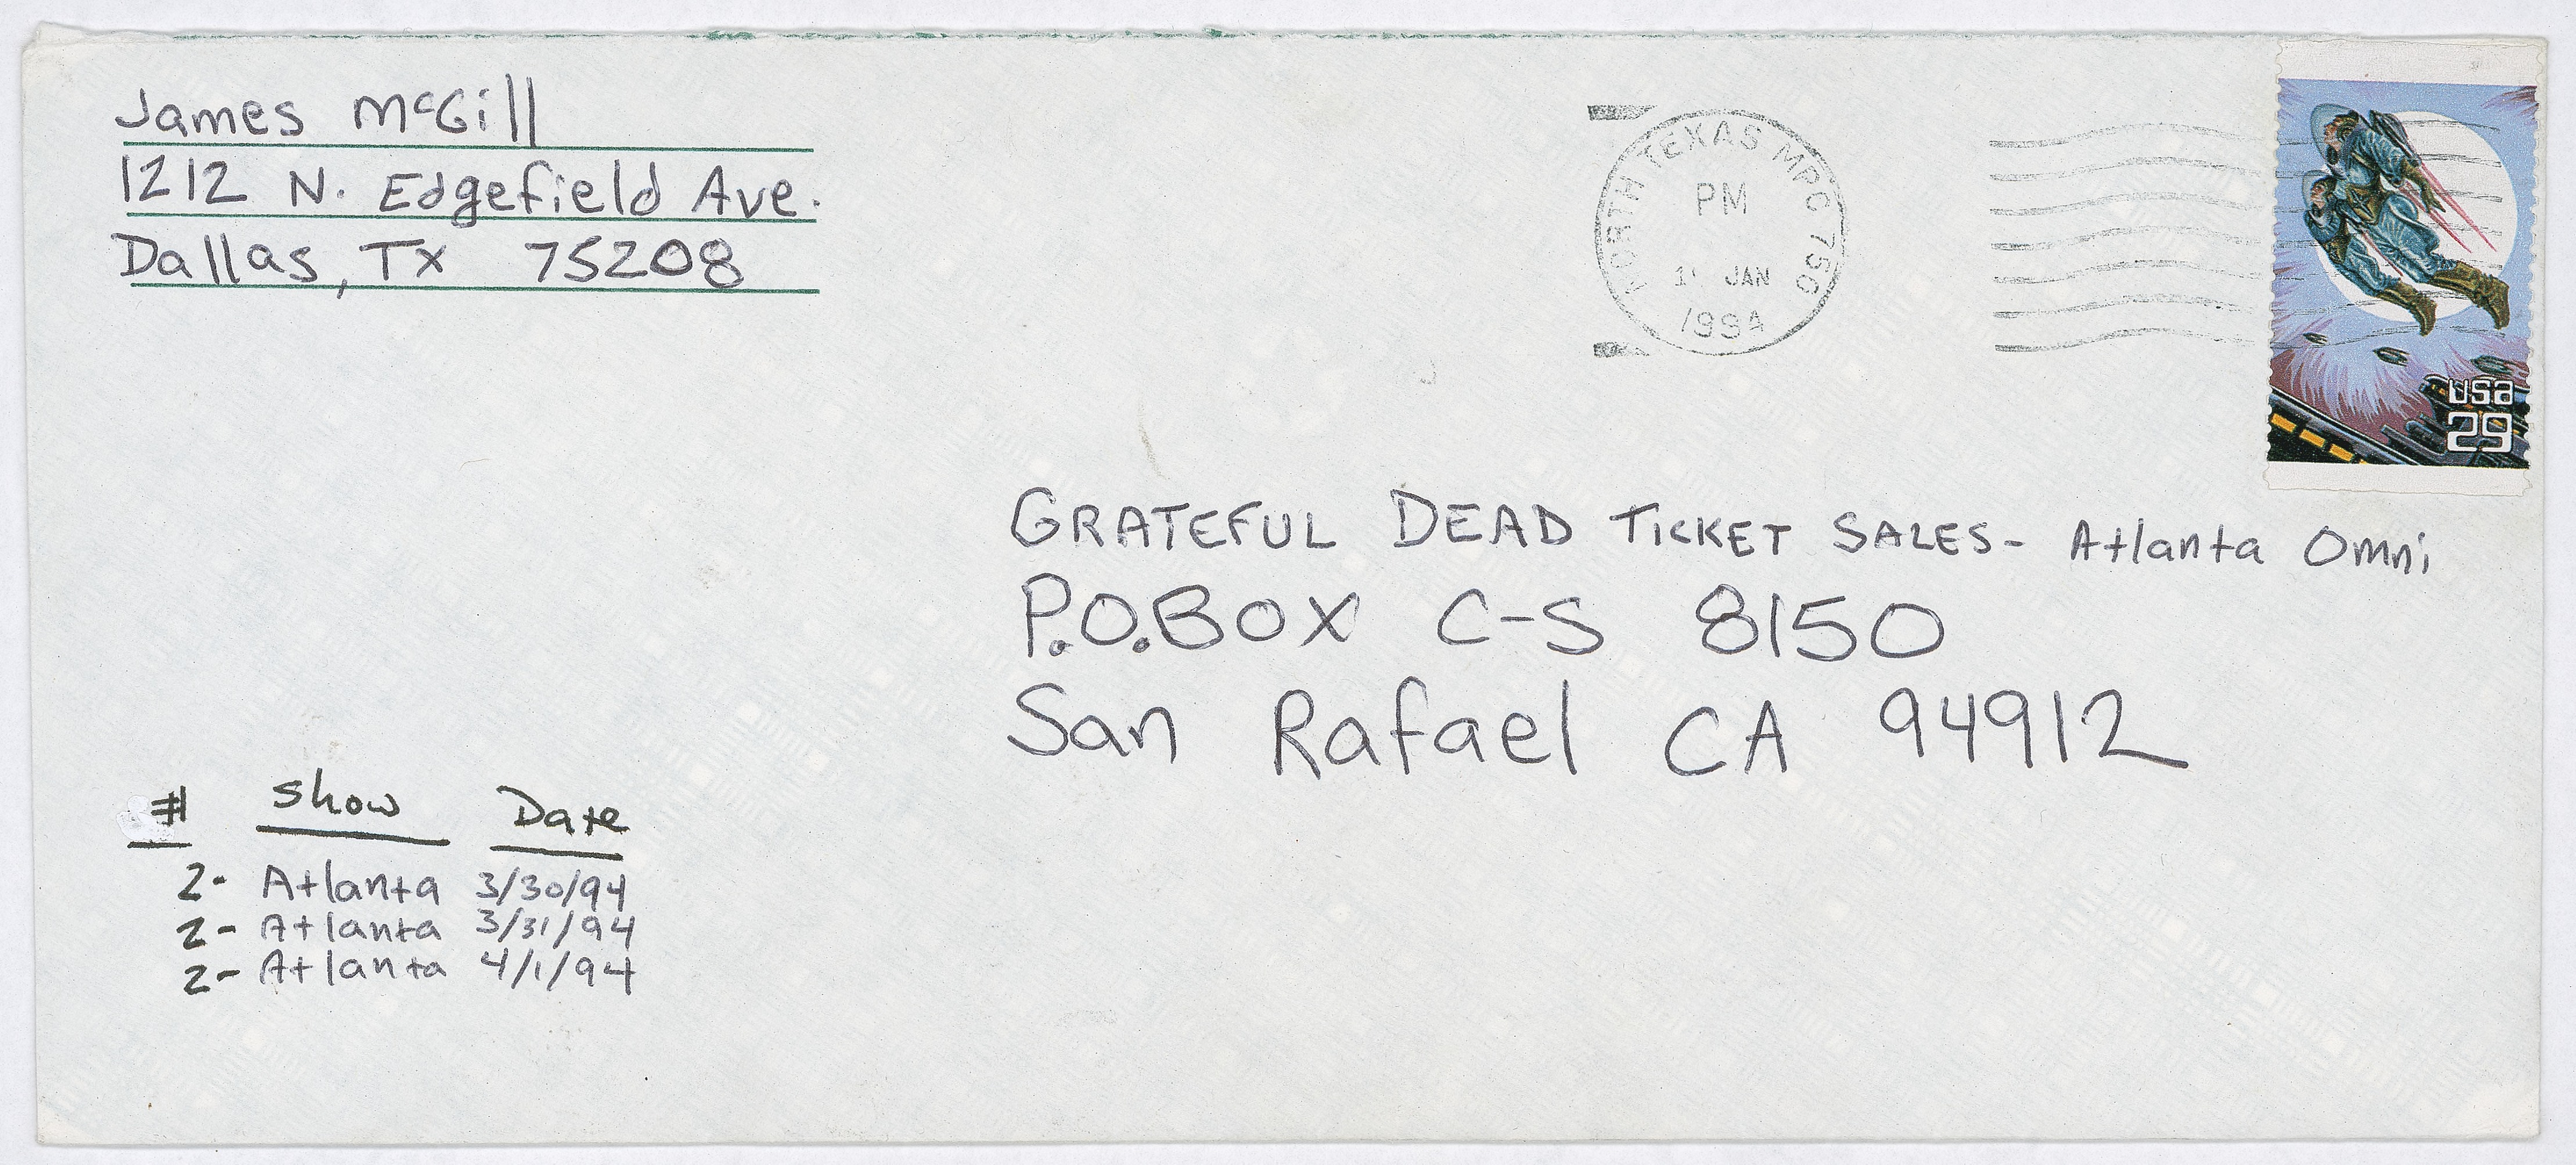 James McGill
1212 N. Edgefield Ave.
Dallas, TX 75208
NORTH TEXAS MPC 750
PM
JAN
1994
USA
29
GRATEFUL DEAD TICKET SALES- Atlanta Omni
P.O.BOX C-S 8150
San Rafael CA 94912
# Show Date
2- Atlanta 3/30/94
2- Atlanta 3/31/94
2- Atlanta 4/1/94